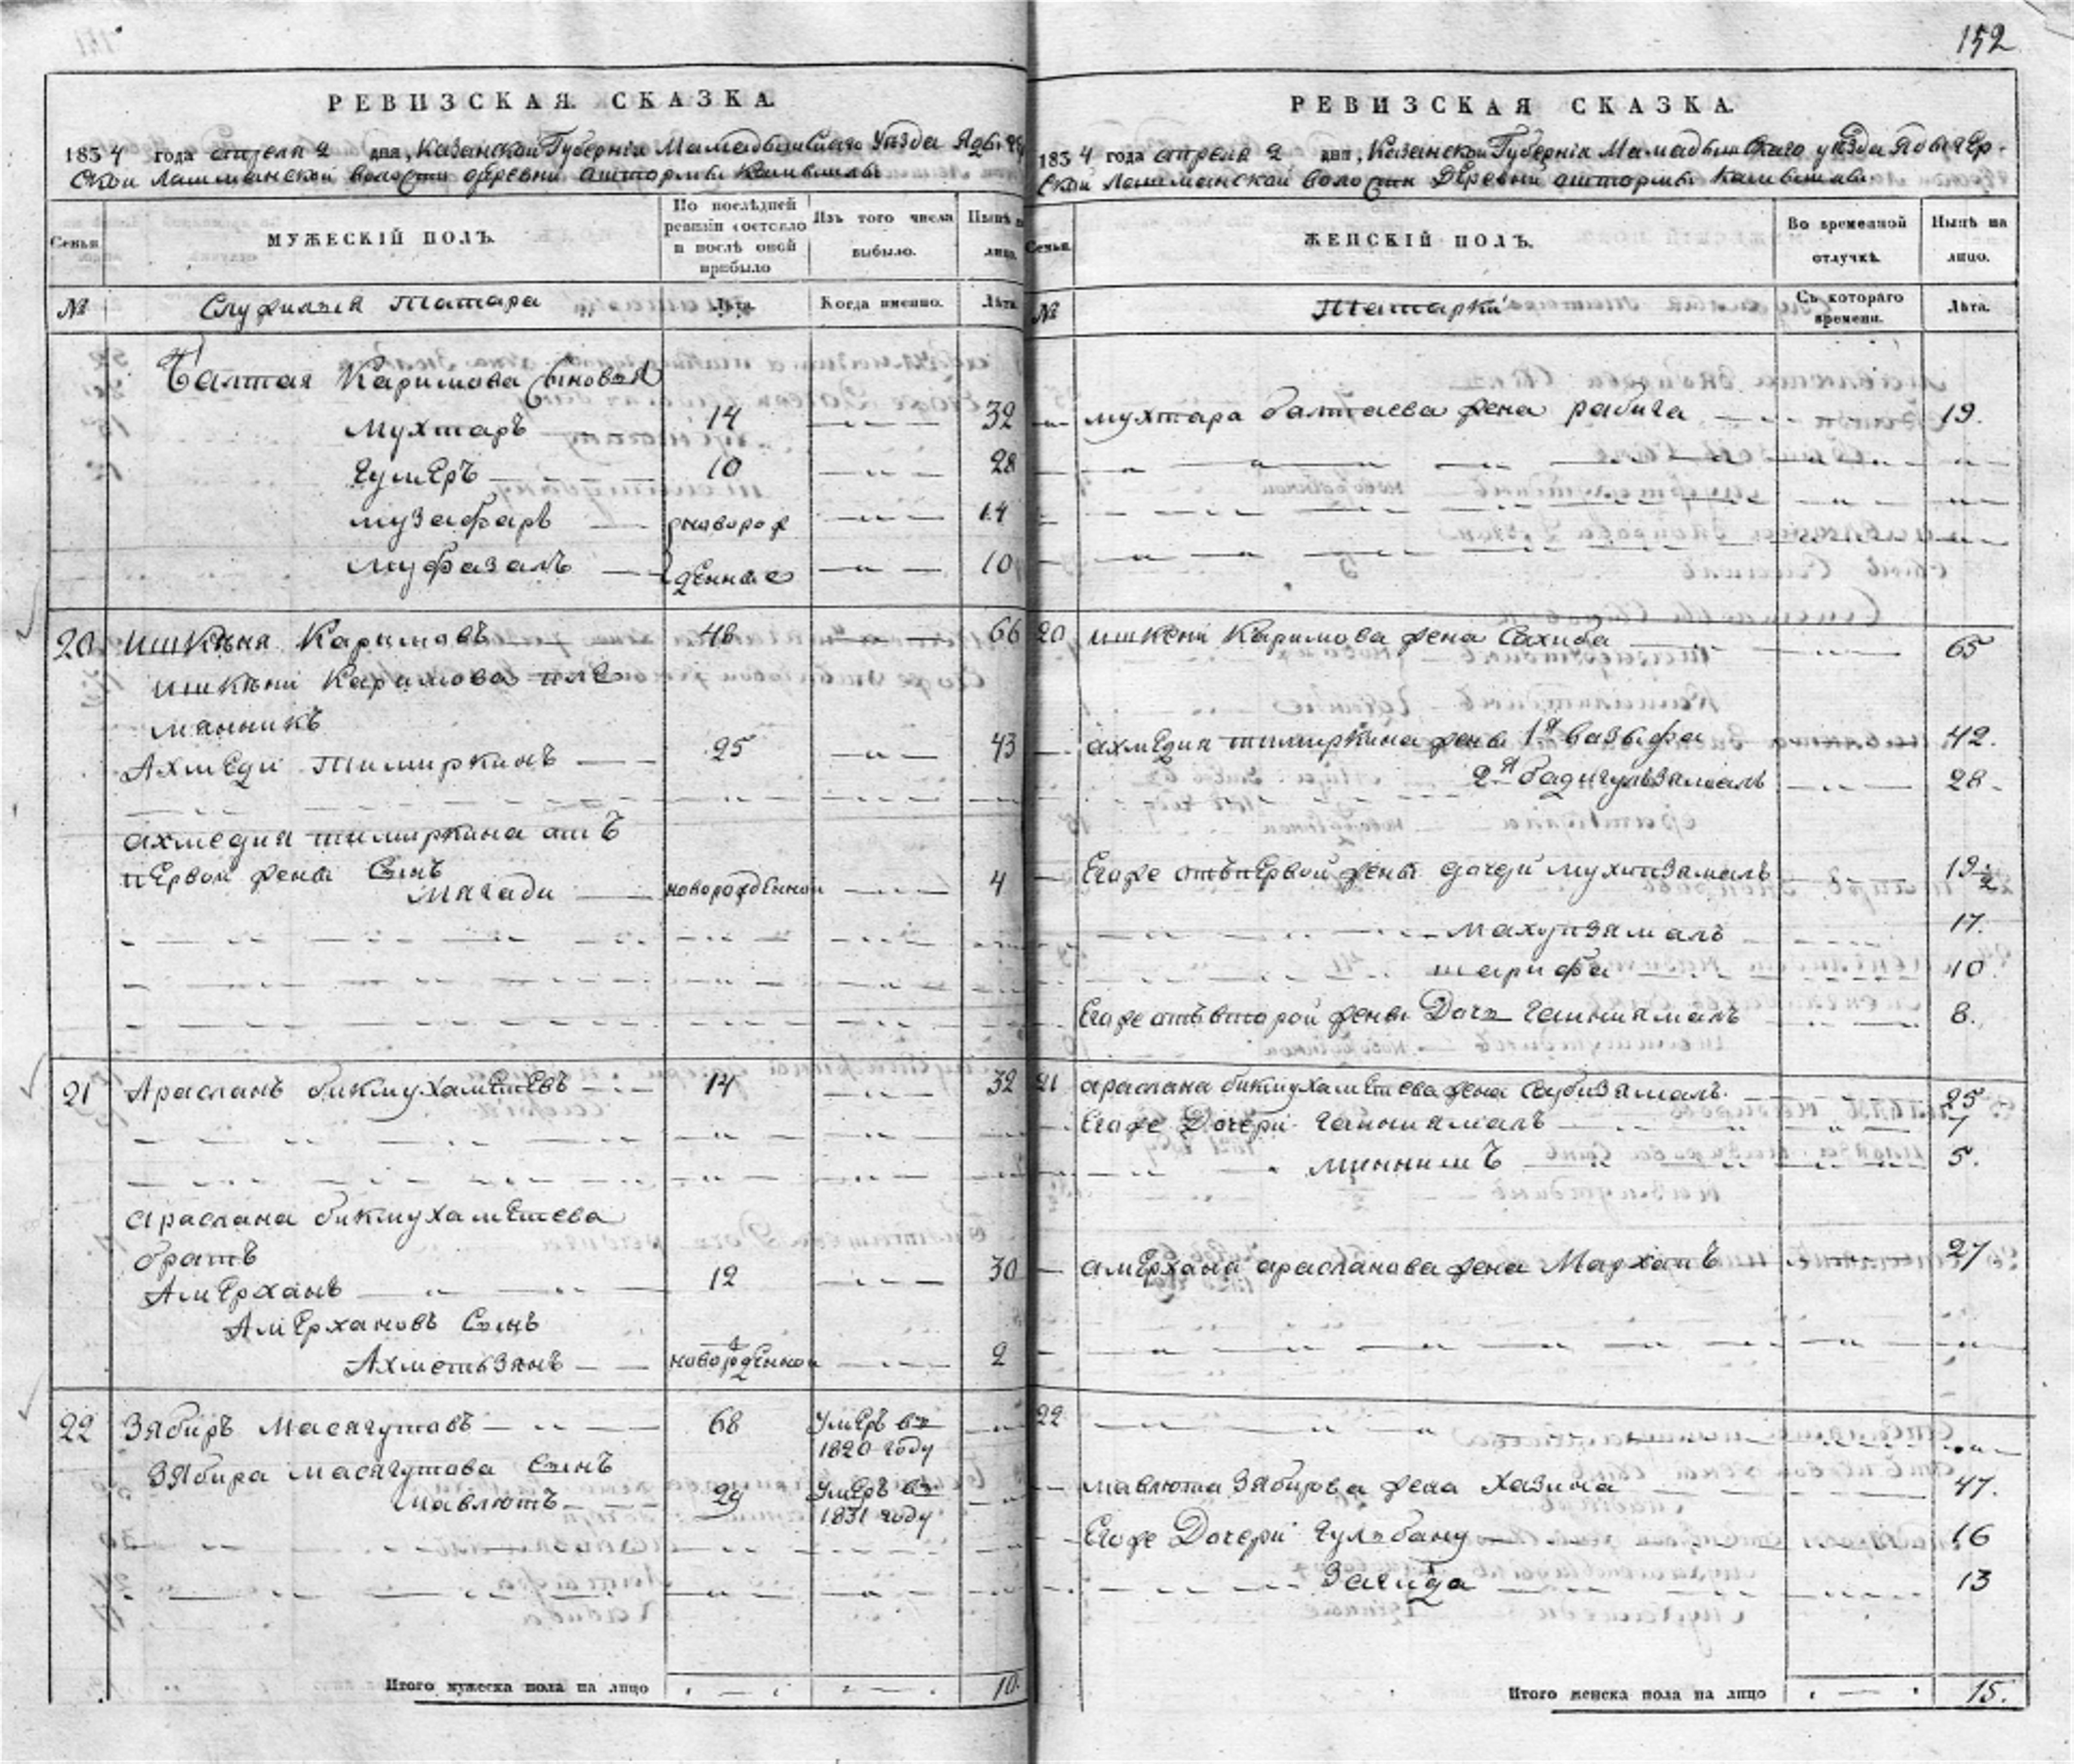 152
РЕВИЗСКАЯ СКАЗКА.
1834 года апреля 2 дня, Казанской Губернiи Мамадышскаго Уѣзда
ской Лашманской волости деревни
Семьи. МУЖЕСКIЙ ПОЛЪ. По послѣдней ревизiи состояло и послѣ оной прибыло Изъ того числа выбыло. Нынѣ на лицо.
№ Служилыя Татара Лѣта. Когда именно. Лѣта.
Балтая Каримова сыновья
Мухтаръ 14 32
Гумеръ 10 28
Музафаръ новорож 14
Муфазалъ денные 10
20 Ишкѣня Каримовъ 48 66
Ишкѣни Каримова пле
манникъ
Ахмеди Тимиркинъ 25 43
Ахмедия тимиркина отъ
первой жены сынъ
Магади новорожденной 4
21 Арасланъ бикмухаметевъ 14 32
Араслана бикмухаметева
братъ
Амерханъ 12 30
Амерхановъ сынъ
Ахметьзянъ новорожденной 2
22 Зябиръ Масягутовъ 68 Умеръ въ
1820 году
Зябира масягутова сынъ
Мавлютъ 29 Умеръ въ
1831 году
Итого мужеска пола на лицо 10.
РЕВИЗСКАЯ СКАЗКА.
1834 года апреля 2 дня, Казанской Губернiи Мамадышскаго уѣзда
ской Лашманской волости деревни
Семьи. ЖЕНСКIЙ ПОЛЪ. Во временной отлучкѣ. Нынѣ на лицо.
№ Татарки Съ котораго времени. Лѣта.
мухтара балтаева жена рабига 19.
20 ишкени Каримова жена Сахиба 65
ахмедия тимиркина жены 1я вазыфа 42.
2я бадигульзямалъ 28.
Егоже отъ первой жены дочери 19 1/2
17.
шарифа 10.
Егоже отъ второй жены Дочь 8.
21 араслана бикмухаметева жена 25
Егоже Дочери 7
5.
амерхана арасланова жена 27
22
мавлюта Зябирова жена Хазина 47.
Егоже Дочери Гульбану 16
Загида 13
Итого женска пола на лицо 15.